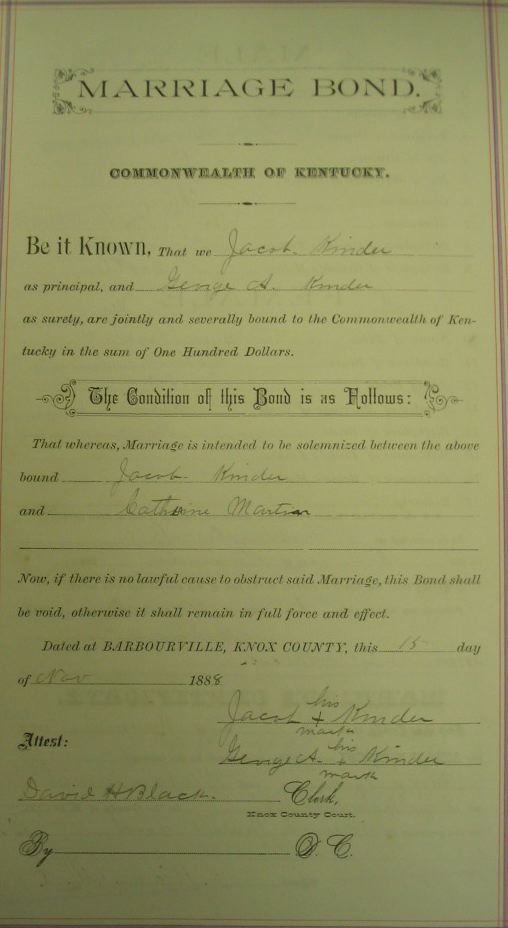 MARRIAGE BOND.
COMMONWEALTH OF KENTUCKY.
Be it Known, That we Jacob Kinder
as principal, and George A. Kinder
as surety, are jointly and severally bound to the Commonwealth of Ken-
tucky in the sum of One Hundred Dollars.
The Condition of this Bond is as Follows:
That whereas, Marriage is intended to be solemnized between the above
bound Jacob Kinder
and Catherine Martin
Now, if there is no lawful cause to obstruct said Marriage, this Bond shall
be void, otherwise it shall remain in full force and effect.
Dated at BARBOURVILLE, KNOX COUNTY, this 15 day
of Nov 1888
his
Jacob + Kinder
mark
Attest:
his
George A. + Kinder
mark
David H Black. Clerk,
Knox County Court.
By D. C.